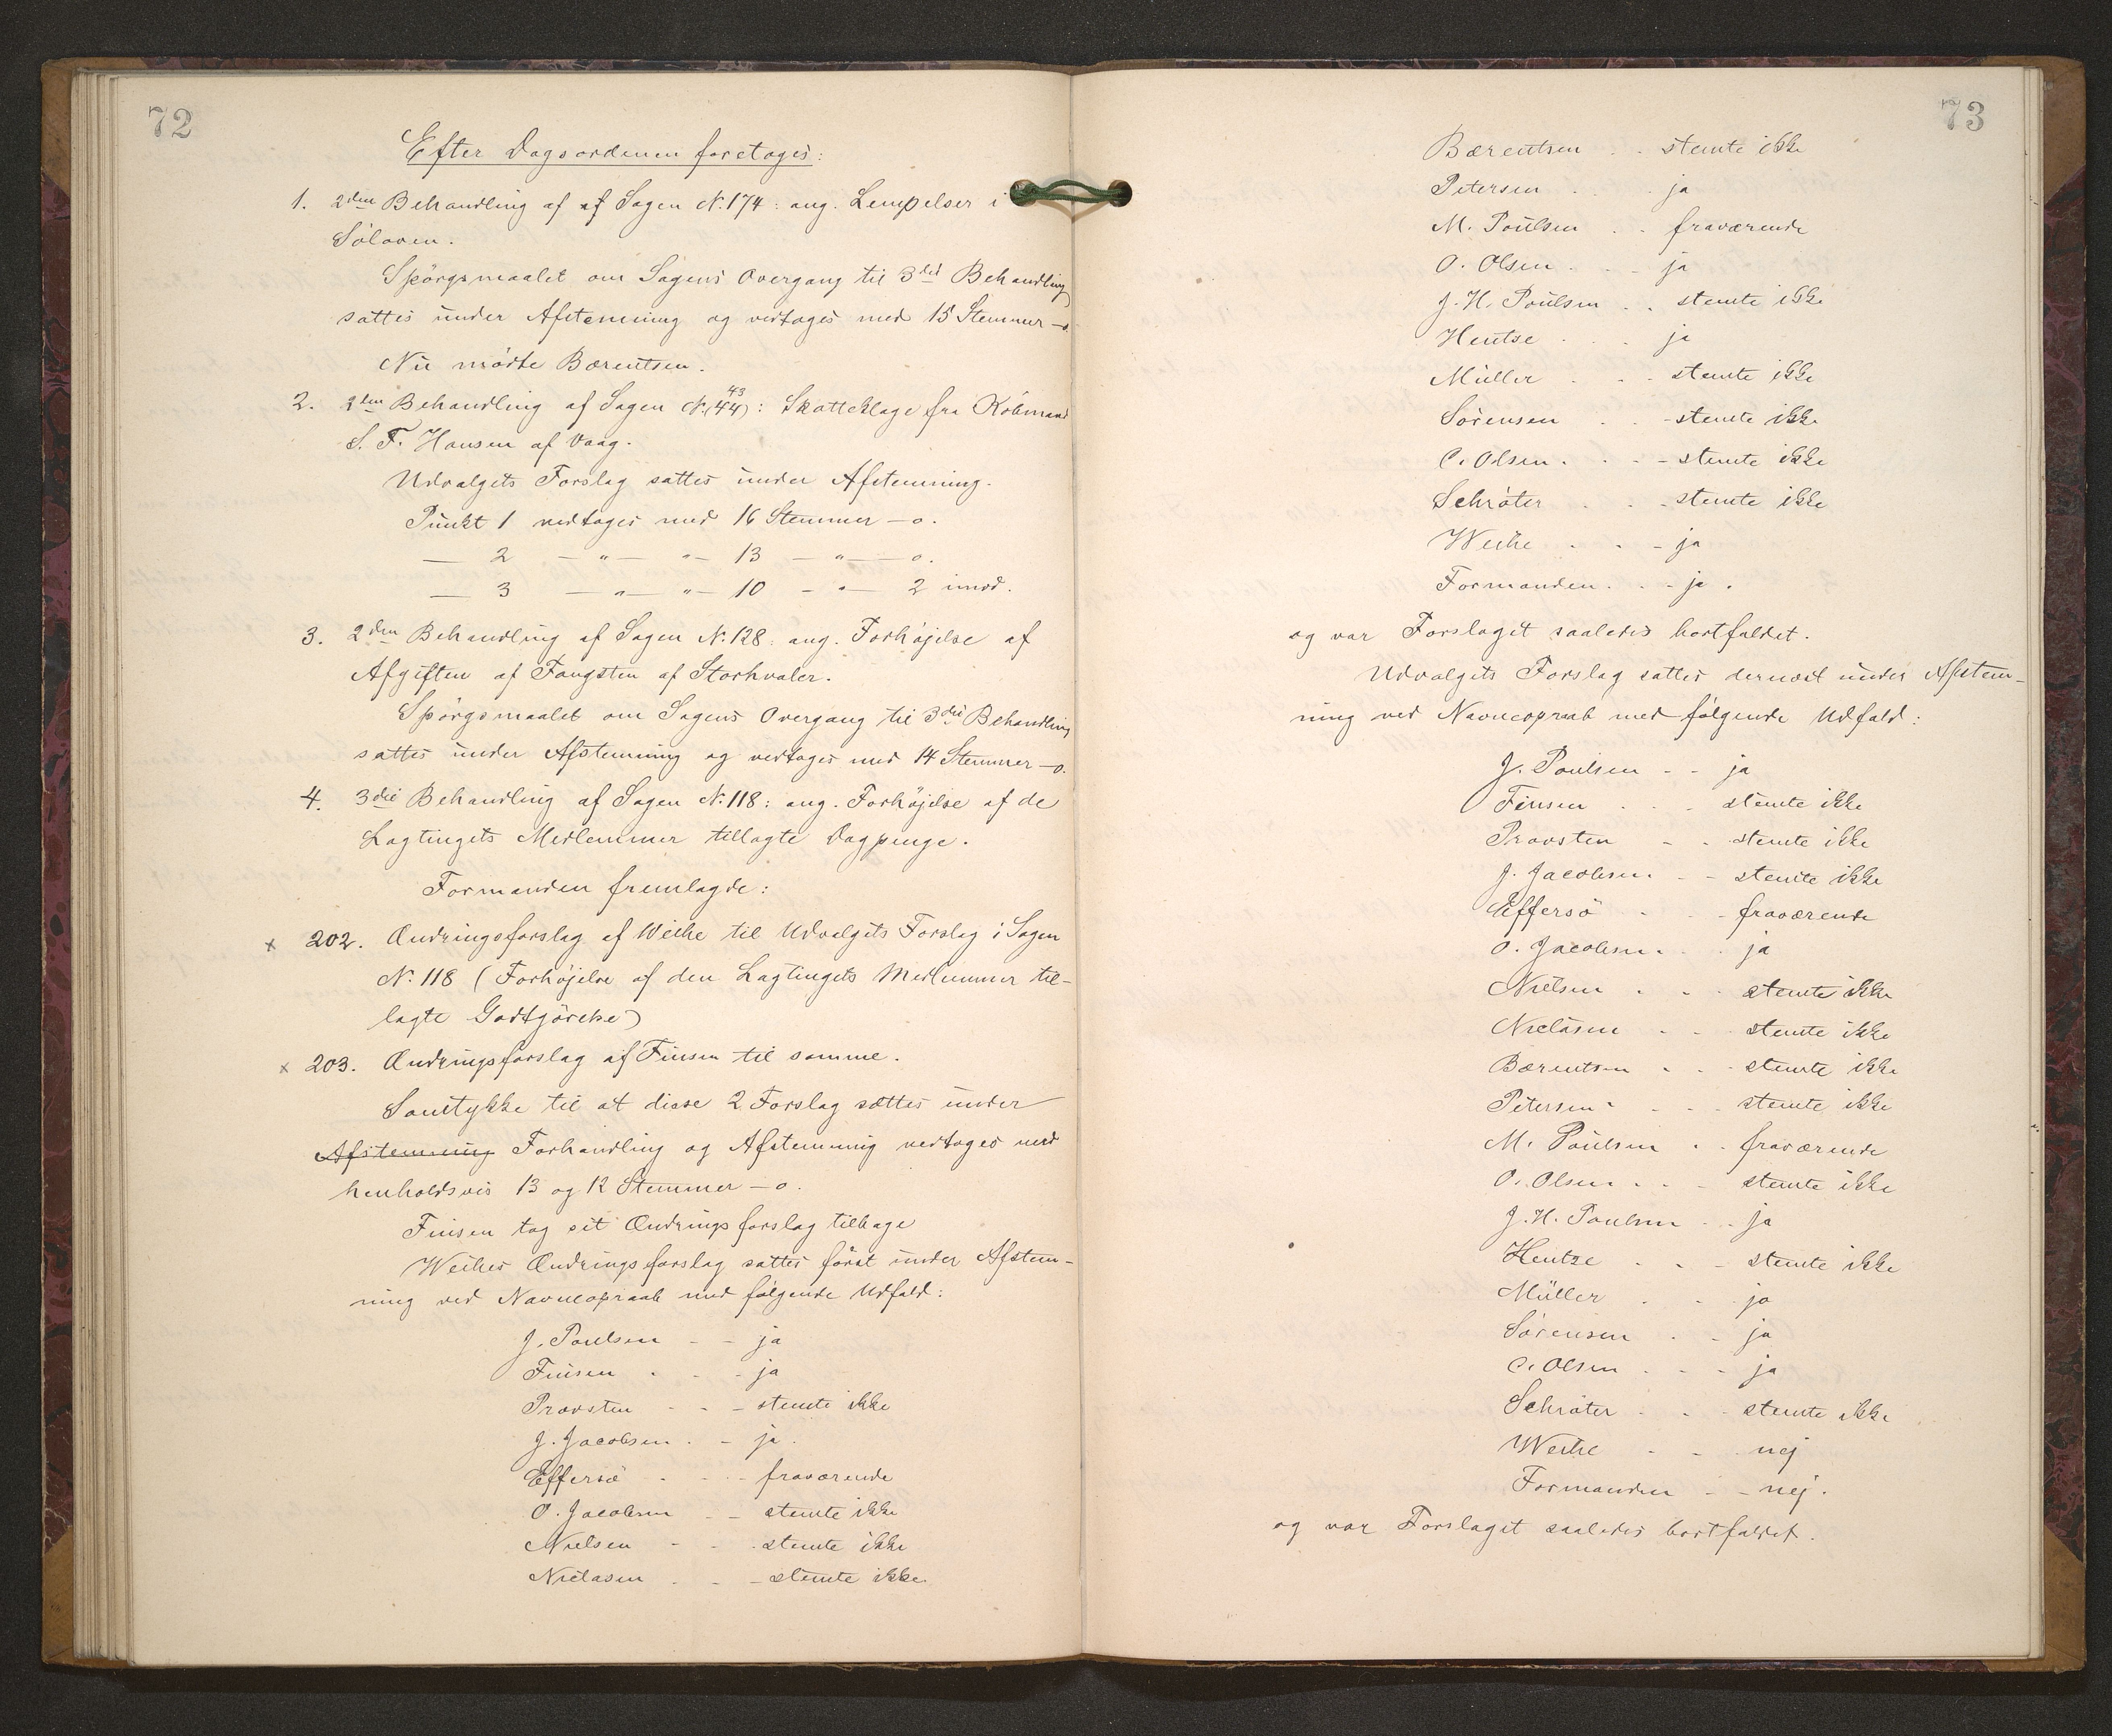 72
Efter Dagsordenen foretoges:
1. 2den Behandling af af Sagen N. 174: ang. Lempelser i
Söloven.
Spörgsmaalet om Sagens Overgang til 3die Behandling
sattes under Afstemning og vedtoges med 15 Stemmer — o.
Nu mödte Bærentsen.
2. 2den Behandling af Sagen N. (44) 43: Skatteklage fra Köbmand
S. F. Hansen af Vaag.
Udvalgets Forslag sattes under Afstemning.
Punkt 1 vedtoges med 16 Stemmer — o.
— 2 — " — " — 13 — " — o.
— 3 — " — " — 10 — " — 2 imod.
3. 2den Behandling af Sagen N. 128: ang. Forhöjelse af
Afgiften af Fangsten af Storhvaler.
Spörgsmaalet om Sagens Overgang til 3die Behandling
sattes under Afstemning og vedtoges med 14 Stemmer — o.
4. 3die Behandling af Sagen N. 118: ang. Forhöjelse af de
Lagtingets Medlemmer tillagte Dagpenge.
Formanden fremlagde:
x 202. Ændringsforslag af Weihe til Udvalgets Forslag i Sagen
N. 118 (Forhöjelse af den Lagtingets Medlemmer til-
lagte Godtgörelse)
x 203. Ændringsforslag af Finsen til samme.
Samtykke til at disse 2 Forslag sattes under
Afstemning Forhandling og Afstemning vedtoges med
henholdsvis 13 og 12 Stemmer — o.
Finsen tog sit Ændringsforslag tilbage
Weihes Ændringsforslag sattes först under Afstem-
ning ved Navneopraab med fölgende Udfald:
J. Poulsen - - ja
Finsen - - - ja
Provsten - - - stemte ikke
J. Jacobsen - - ja.
Effersö - - - fraværende
O. Jacobsen - - stemte ikke
Nielsen - - - stemte ikke
Niclasen - - - stemte ikke.
73
Bærentsen - - stemte ikke
Petersen - - - ja
M. Poulsen - - fraværende
O. Olsen - - - ja
J. H. Poulsen - - stemte ikke
Hentze - - - ja
Müller - - - stemte ikke
Sörensen - - - stemte ikke
C. Olsen - - - stemte ikke
Schröter - - - stemte ikke
Weihe - - - ja
Formanden - - - ja.
og var Forslaget saaledes bortfaldet.
Udvalgets Forslag sattes dernæst under Afstem-
ning ved Navneopraab med fölgende Udfald:
J. Poulsen - - ja
Finsen - - - stemte ikke
Provsten - - stemte ikke
J. Jacobsen - - stemte ikke
Effersö - - - fraværende
O. Jacobsen - - ja
Nielsen - - - stemte ikke
Niclasen - - stemte ikke
Bærentsen - - - stemte ikke
Petersen - - - stemte ikke
M. Poulsen - - fraværende
O. Olsen - - - stemte ikke
J. H. Poulsen - - ja
Hentze - - - stemte ikke
Müller - - ja
Sörensen - - ja
C. Olsen - - - ja
Schröter - - - stemte ikke
Weihe - - nej
Formanden - - nej.
og var Forslaget saaledes bortfaldet.